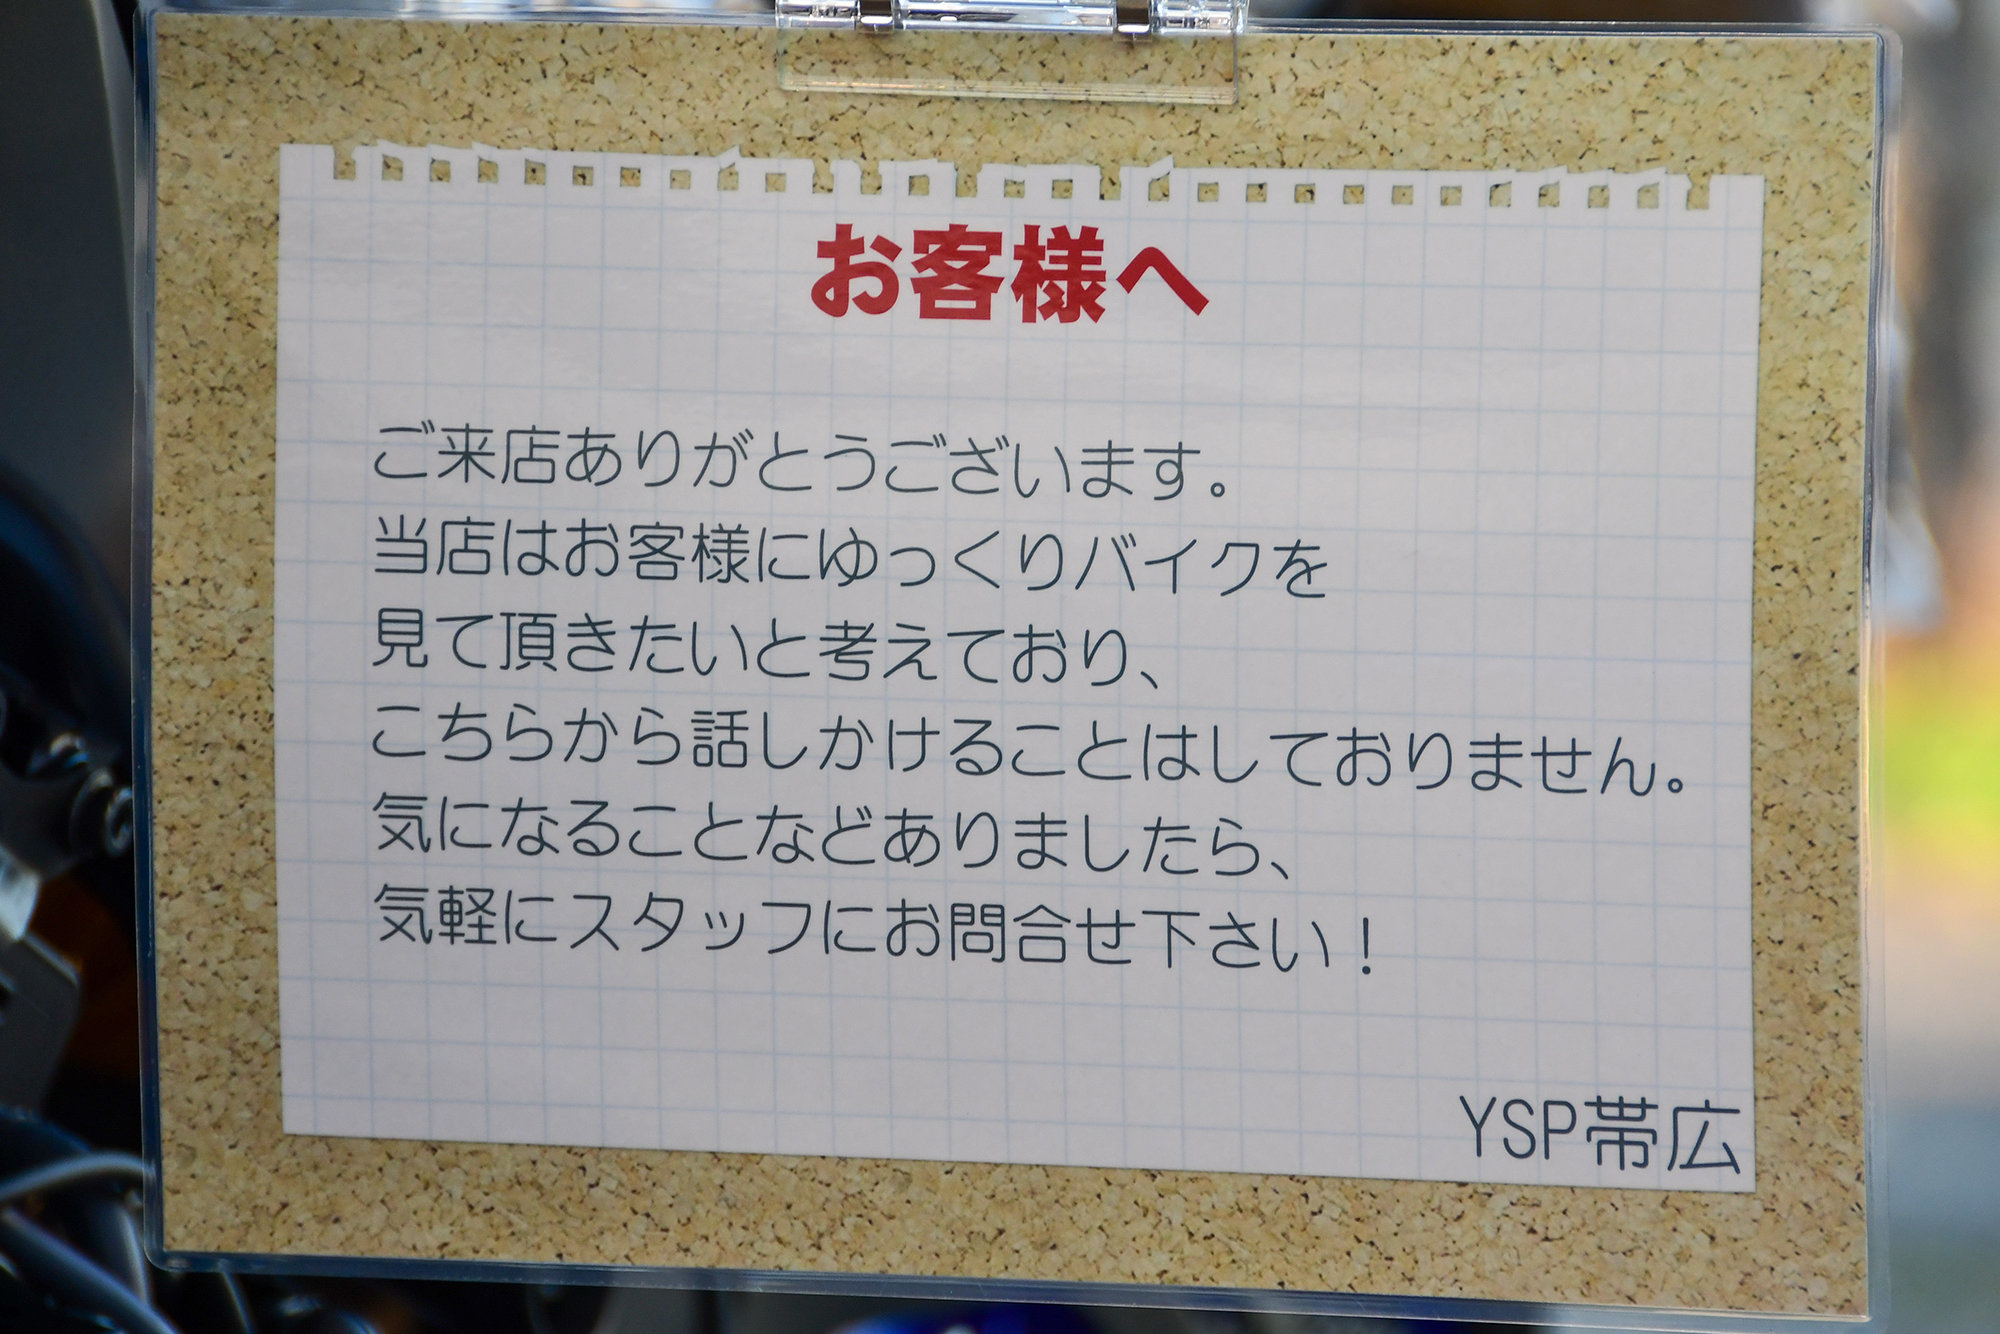 お客様へ
ご来店ありがとうございます。
当店はお客様にゆっくりバイクを
見て頂きたいと考えており、
こちらから話しかけることはしておりません。
気になることなどありましたら、
気軽にスタッフにお問合せ下さい！
YSP帯広